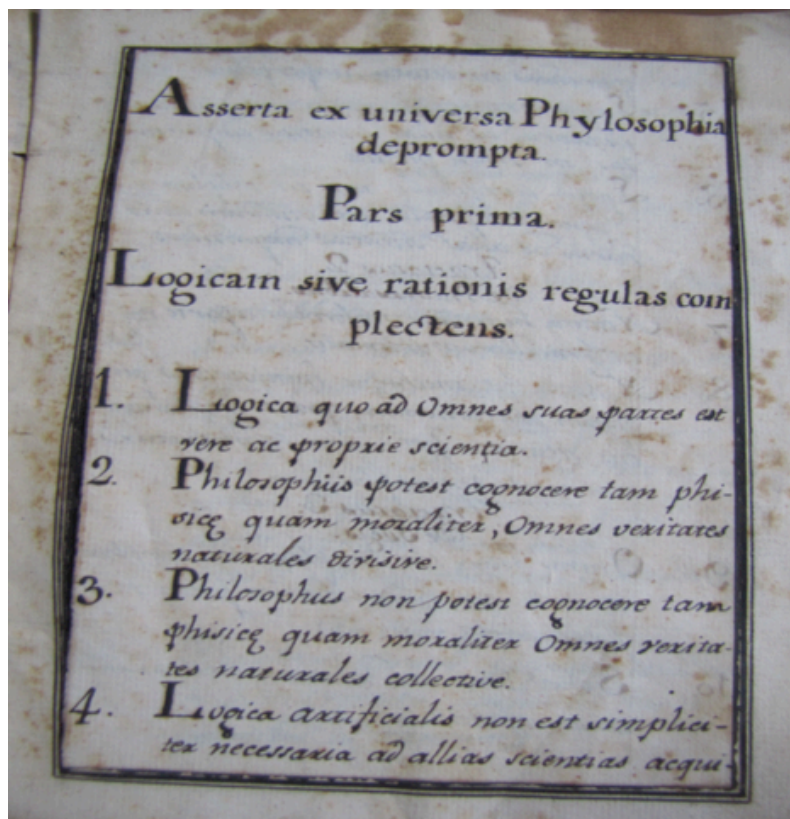 Asserta ex universa Phylosophia
deprompta.
Pars prima.
Logicam sive rationis regulas com
plectens.
1. Logica quo ad Omnes suas partes est
vere ac proprie scientia.
2. Philosophus potest cognocere tam phi-
sicę quam moraliter, Omnes veritates
naturales divisive.
3. Philosophus non potest cognocere tam
phisicę quam moraliter Omnes verita-
tes naturales collective.
4. Logica artificialis non est simplici-
ter necessaria ad allias scientias acqui-